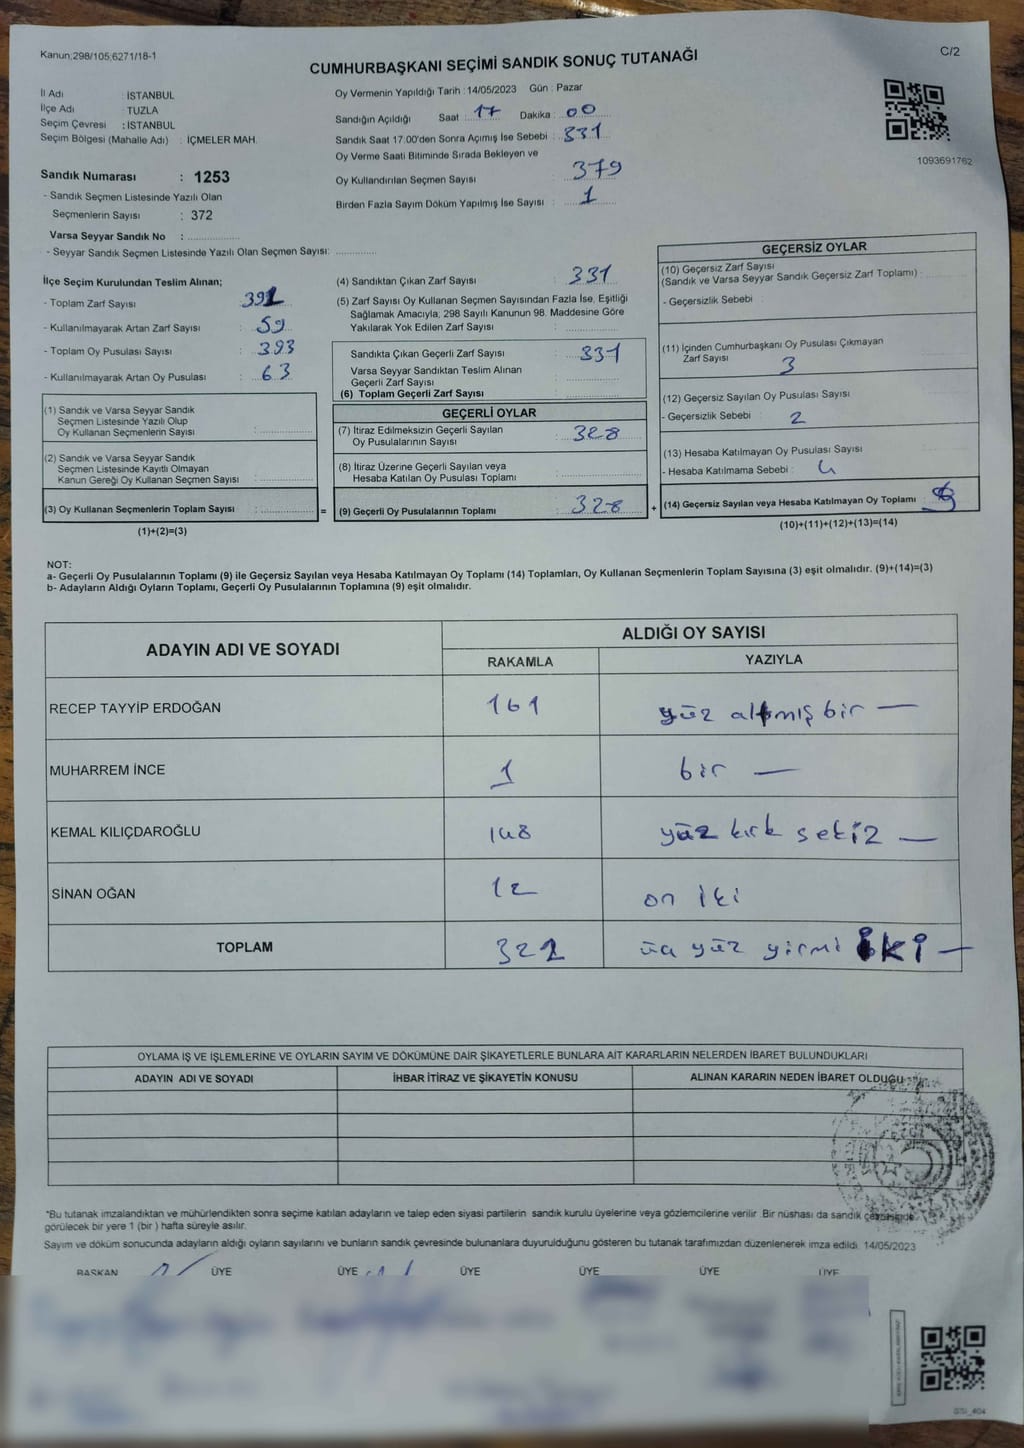 Kanun;298/105;6271/18-1
C/2
CUMHURBAŞKANI SEÇİMİ SANDIK SONUÇ TUTANAĞI
İl Adı : İSTANBUL
İlçe Adı : TUZLA
Seçim Çevresi : İSTANBUL
Seçim Bölgesi (Mahalle Adı) : İÇMELER MAH.
Sandık Numarası : 1253
- Sandık Seçmen Listesinde Yazılı Olan
Seçmenlerin Sayısı : 372
Varsa Seyyar Sandık No :
- Seyyar Sandık Seçmen Listesinde Yazılı Olan Seçmen Sayısı:
Oy Vermenin Yapıldığı Tarih : 14/05/2023 Gün : Pazar
Sandığın Açıldığı Saat : 17 Dakika : 00
Sandık Saat 17.00'den Sonra Açımış İse Sebebi : 331
Oy Verme Saati Bitiminde Sırada Bekleyen ve
Oy Kullandırılan Seçmen Sayısı 379
Birden Fazla Sayım Döküm Yapılmış İse Sayısı : 1
1093691762
İlçe Seçim Kurulundan Teslim Alınan;
- Toplam Zarf Sayısı
- Kullanılmayarak Artan Zarf Sayısı : 59
- Toplam Oy Pusulası Sayısı : 393
- Kullanılmayarak Artan Oy Pusulası : 63
(1) Sandık ve Varsa Seyyar Sandık
Seçmen Listesinde Yazılı Olup
Oy Kullanan Seçmenlerin Sayısı :
(2) Sandık ve Varsa Seyyar Sandık
Seçmen Listesinde Kayıtlı Olmayan
Kanun Gereği Oy Kullanan Seçmen Sayısı :
(3) Oy Kullanan Seçmenlerin Toplam Sayısı :
(1)+(2)=(3)
=
(4) Sandıktan Çıkan Zarf Sayısı : 331
(5) Zarf Sayısı Oy Kullanan Seçmen Sayısından Fazla İse, Eşitliği
Sağlamak Amacıyla, 298 Sayılı Kanunun 98. Maddesine Göre
Yakılarak Yok Edilen Zarf Sayısı :
Sandıkta Çıkan Geçerli Zarf Sayısı : 331
Varsa Seyyar Sandıktan Teslim Alınan
Geçerli Zarf Sayısı :
(6) Toplam Geçerli Zarf Sayısı :
GEÇERLİ OYLAR
(7) İtiraz Edilmeksizin Geçerli Sayılan
Oy Pusulalarının Sayısı : 328
(8) İtiraz Üzerine Geçerli Sayılan veya
Hesaba Katılan Oy Pusulası Toplamı :
(9) Geçerli Oy Pusulalarının Toplamı : 328
+
GEÇERSİZ OYLAR
(10) Geçersiz Zarf Sayısı
(Sandık ve Varsa Seyyar Sandık Geçersiz Zarf Toplamı) :
- Geçersizlik Sebebi :
(11) İçinden Cumhurbaşkanı Oy Pusulası Çıkmayan
Zarf Sayısı : 3
(12) Geçersiz Sayılan Oy Pusulası Sayısı
- Geçersizlik Sebebi : 2
(13) Hesaba Katılmayan Oy Pusulası Sayısı
- Hesaba Katılmama Sebebi : 4
(14) Geçersiz Sayılan veya Hesaba Katılmayan Oy Toplamı :
(10)+(11)+(12)+(13)=(14)
NOT:
a- Geçerli Oy Pusulalarının Toplamı (9) ile Geçersiz Sayılan veya Hesaba Katılmayan Oy Toplamı (14) Toplamları, Oy Kullanan Seçmenlerin Toplam Sayısına (3) eşit olmalıdır. (9)+(14)=(3)
b- Adayların Aldığı Oyların Toplamı, Geçerli Oy Pusulalarının Toplamına (9) eşit olmalıdır.
ADAYIN ADI VE SOYADI
ALDIĞI OY SAYISI
RAKAMLA YAZIYLA
RECEP TAYYİP ERDOĞAN 161 yüz altmış bir —
MUHARREM İNCE 1 bir —
KEMAL KILIÇDAROĞLU 148 yüz kırk sekiz —
SİNAN OĞAN 12 on iki
TOPLAM 322 üç yüz yirmi iki —
OYLAMA İŞ VE İŞLEMLERİNE VE OYLARIN SAYIM VE DÖKÜMÜNE DAİR ŞİKAYETLERLE BUNLARA AİT KARARLARIN NELERDEN İBARET BULUNDUKLARI
ADAYIN ADI VE SOYADI İHBAR İTİRAZ VE ŞİKAYETİN KONUSU ALINAN KARARIN NEDEN İBARET OLDUĞU
*Bu tutanak imzalandıktan ve mühürlendikten sonra seçime katılan adayların ve talep eden siyasi partilerin sandık kurulu üyelerine veya gözlemcilerine verilir. Bir nüshası da sandık çevresinde
görülecek bir yere 1 (bir ) hafta süreyle asılır.
Sayım ve döküm sonucunda adayların aldığı oyların sayılarını ve bunların sandık çevresinde bulunanlara duyurulduğunu gösteren bu tutanak tarafımızdan düzenlenerek imza edildi. 14/05/2023
BAŞKAN ÜYE ÜYE ÜYE ÜYE ÜYE ÜYE